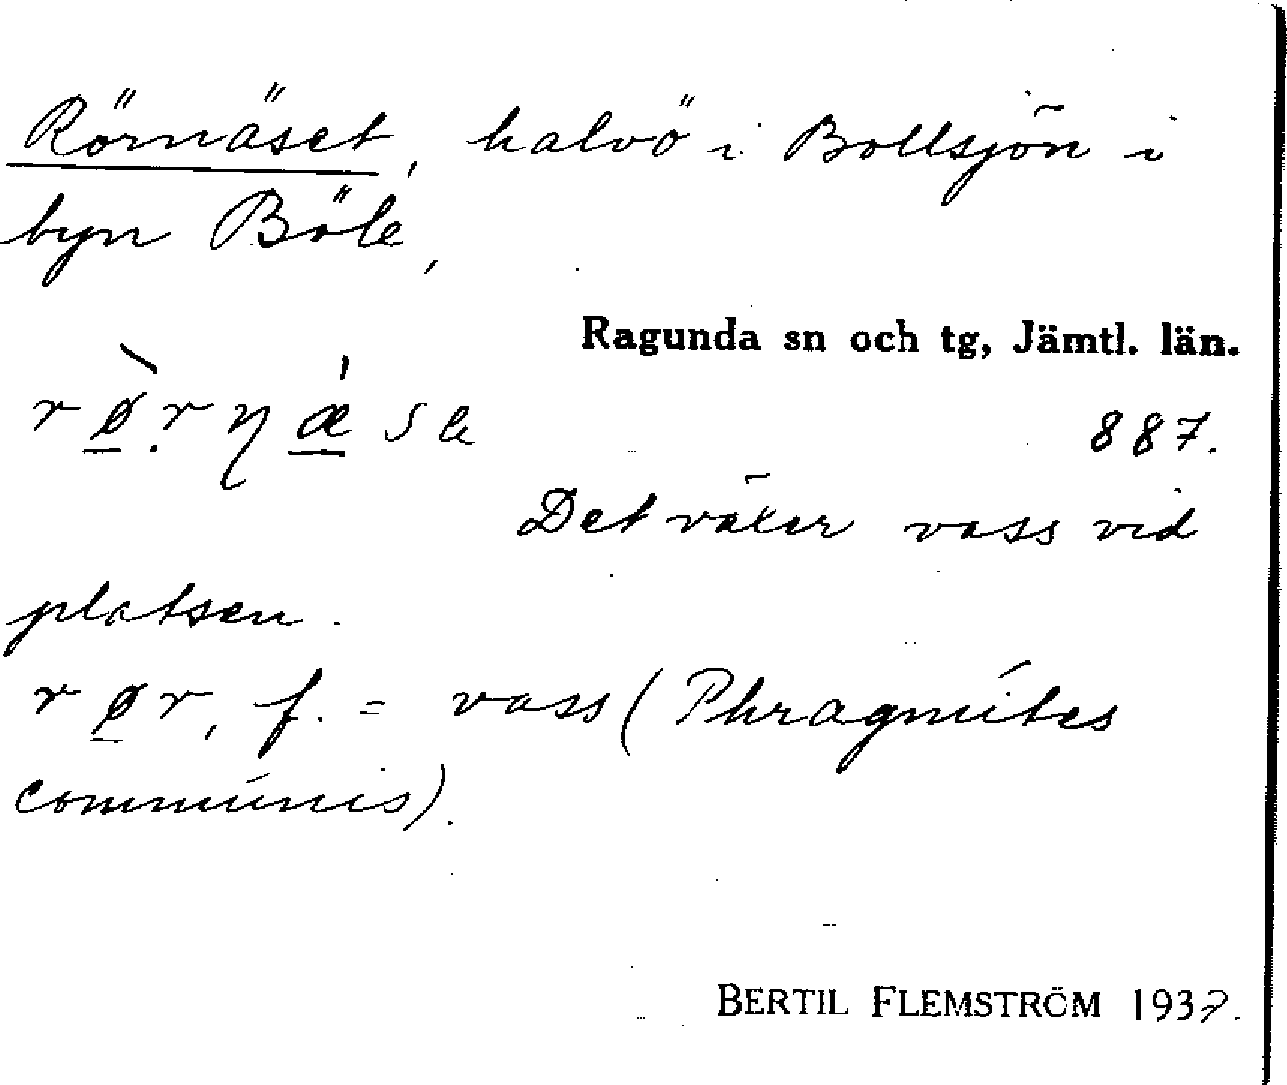 Rörnäset, halvö i Bollsjön i
byn Böle,
Ragunda sn och tg, Jämtl. län.
rø̱̀.rŋǽ̱se
887.
Det växer vass vid
platsen.
rø̱r, f. = vass (Phragmites
communis).
BERTIL FLEMSTRÖM 1937.